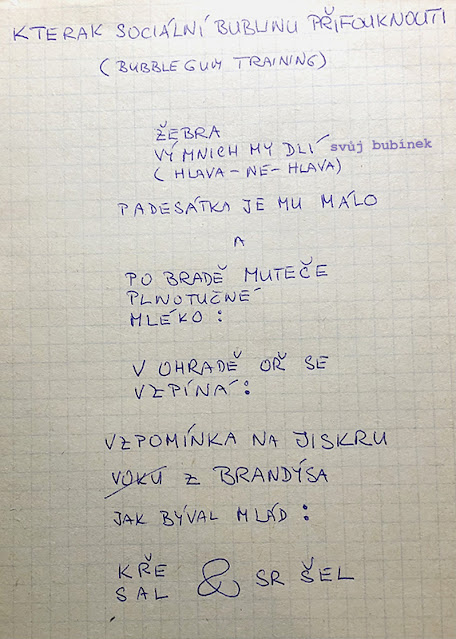 KTERAK SOCIÁLNÍ BUBLINU PŘIFOUKNOUTI
(BUBBLE GUM TRAINING)
ŽEBRA
VÝ MNICH MY DLÍ svůj bubínek
(HLAVA-NE-HLAVA)
PADESÁTKA JE MU MÁLO
A
PO BRADĚ MUTEČE
PLNOTUČNÉ
MLÉKO:
V OHRADĚ OŘ SE
VZPÍNÁ:
VZPOMÍNKA NA JISKRU
VOKU Z BRANDÝSA
JAK BÝVAL MLÁD:
KŘE & SR ŠEL
SAL